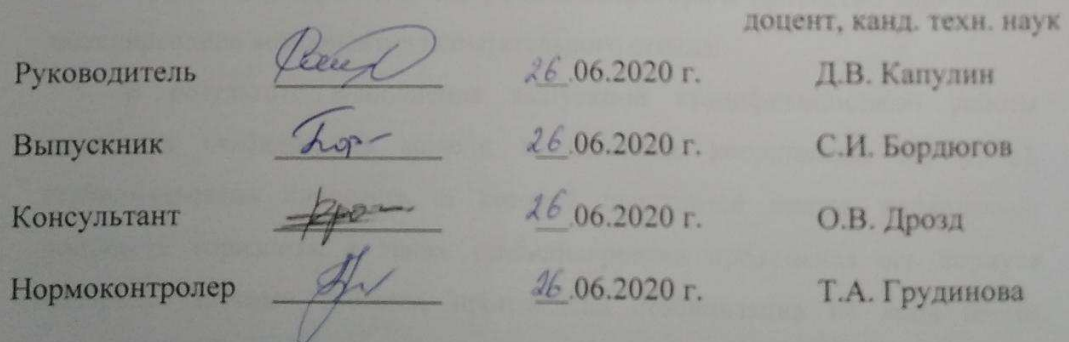 доцент, канд. техн. наук
Руководитель 26.06.2020 г. Д.В. Капулин
Выпускник 26.06.2020 г. С.И. Бордюгов
Консультант 26.06.2020 г. О.В. Дрозд
Нормоконтролер 26.06.2020 г. Т.А. Грудинова